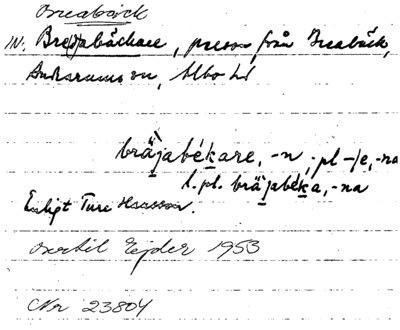 IN. Bre(d)abäckare, person från Breabäck,
Andrarums sn, Albo hd
bräjabékare, -n, -pl -/e, -na
l. pl. bräjabéka, -na
Enligt Ture
Bertil Ejder 1953
Nr 23804